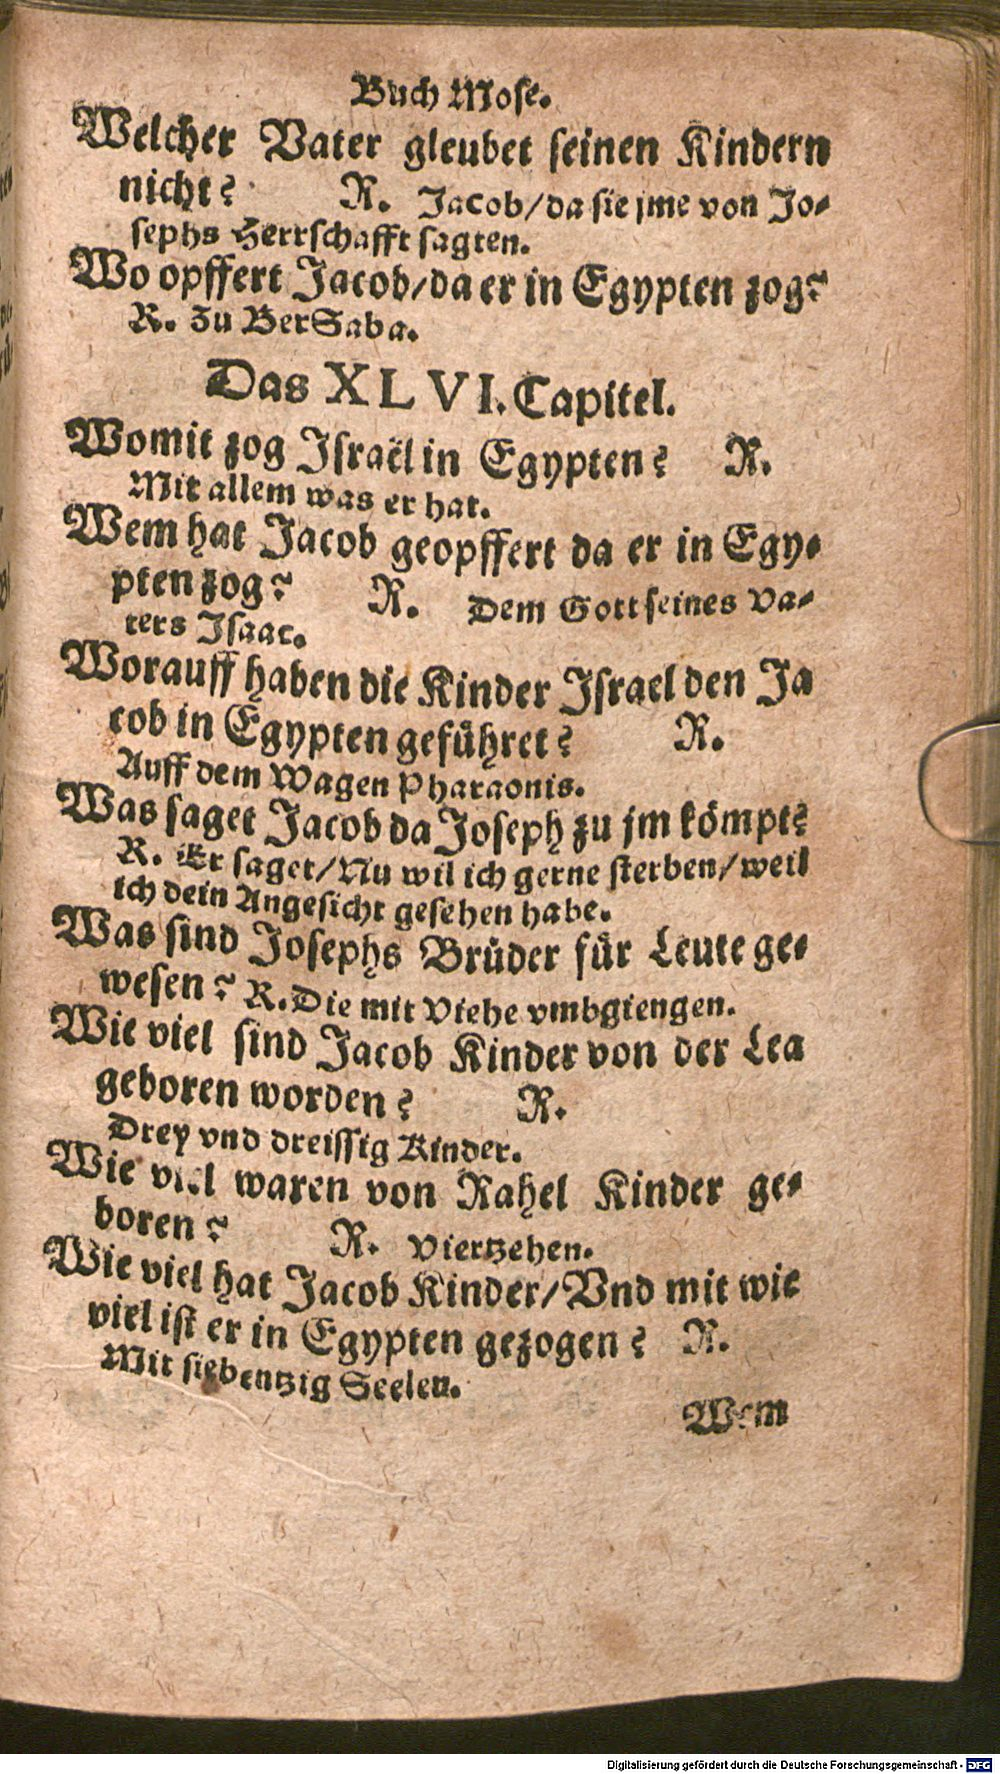 Buch Mose.
Welcher Vater gleubet seinen Kindern
nicht? R. Jacob/da sie jme von Jo-
sephs Herrschafft sagten.
Wo opffert Jacob/da er in Egypten zog?
R. Zu BerSaba.
Das XLVI. Capitel.
Womit zog Israël in Egypten? R.
Mit allem was er hat.
Wem hat Jacob geopffert da er in Egy-
pten zog? R. Dem Gott seines Va-
ters Isaac.
Worauff haben die Kinder Israel den Ja
cob in Egypten geführet? R.
Auff dem Wagen Pharaonis.
Was saget Jacob da Joseph zu jm kömpt?
R. Er saget/Nu wil ich gerne sterben/weil
ich dein Angesicht gesehen habe.
Was sind Josephs Brüder für Leute ge-
wesen? R. Die mit Viehe vmbgiengen.
Wie viel sind Jacob Kinder von der Lea
geboren worden? R.
Drey vnd dreissig Kinder.
Wie viel waren von Rahel Kinder ge-
boren? R. Viertzehen.
Wie viel hat Jacob Kinder/Vnd mit wie
viel ist er in Egypten gezogen? R.
Mit siebentzig Seelen.
Wem
Digitalisierung gefördert durch die Deutsche Forschungsgemeinschaft - DFG